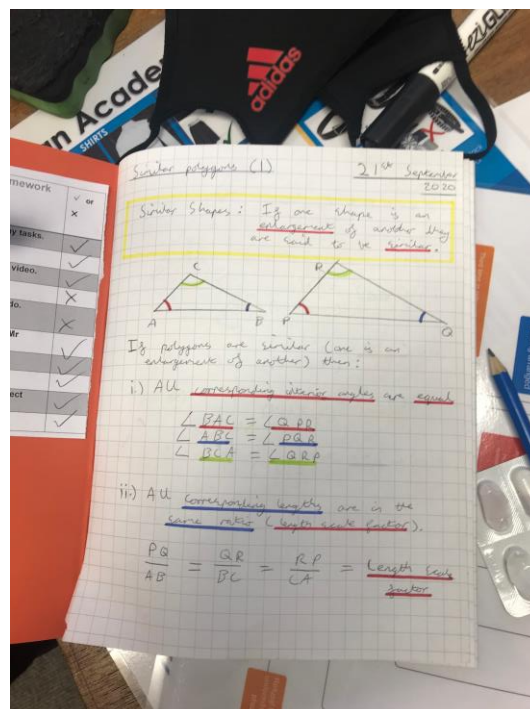 an Academ
adidas
SHIRTS
mework
✓ or
×
y tasks.
video.
do.
Mr
ect
Similar polygons (1)
21st September
2020
Similar Shapes: If one shape is an
enlargement of another they
are said to be similar.
C
A
B
R
P
Q
If polygons are similar (one is an
enlargement of another) then:
i.) All corresponding interior angles are equal
∠BAC = ∠QPR
∠ABC = ∠PQR
∠BCA = ∠QRP
ii.) All corresponding lengths are in the
same ratio (length scale factor).
PQ/AB = QR/BC = RP/CA = Length scale
factor